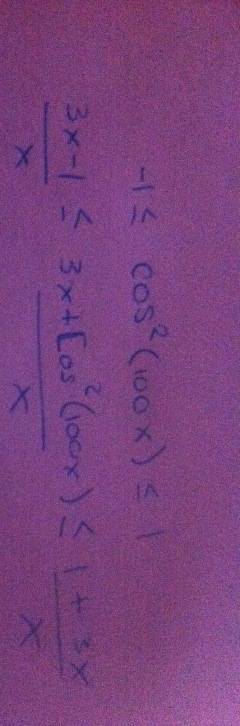 -1 ≤ cos²(100x) ≤ 1
(3x-1)/x ≤ (3x+Cos²(100x))/x ≤ (1+3x)/x